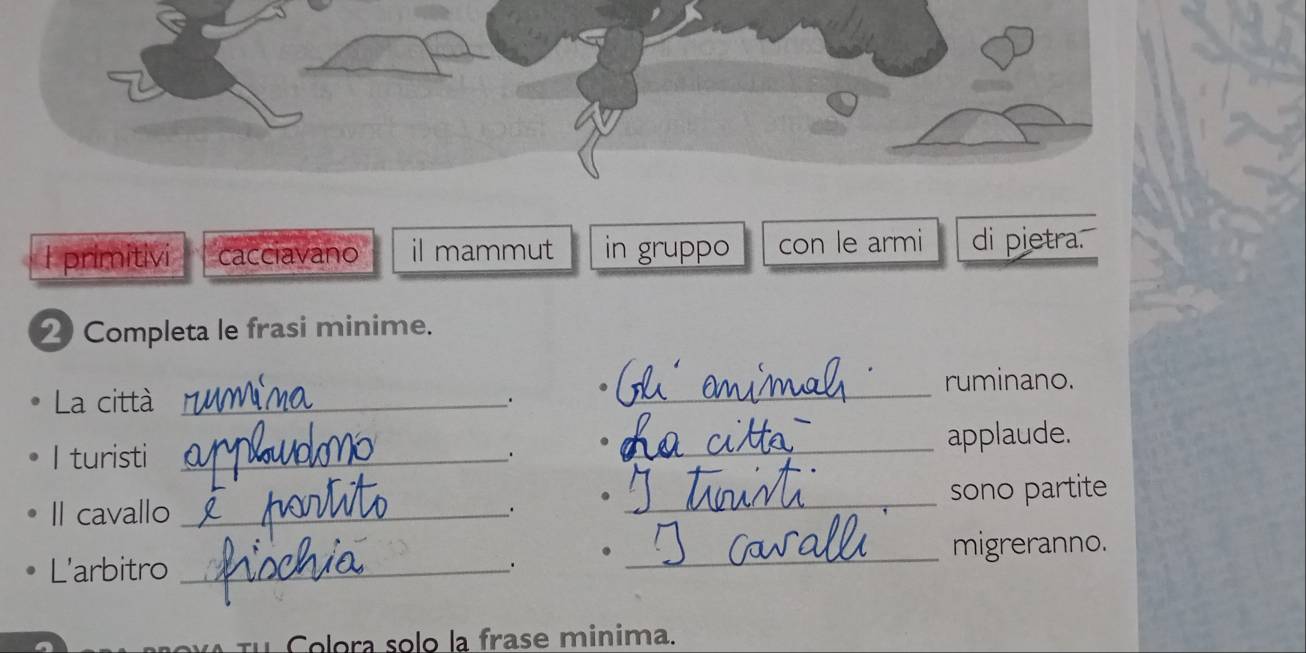 I primitivi cacciavano il mammut in gruppo con le armi di pietra.
2 Completa le frasi minime.
• La città rumina.
• I turisti applaudono.
• Il cavallo è partito.
• L'arbitro fischia.
• Gli animali ruminano.
• La città applaude.
• I turisti sono partite
• I cavalli migreranno.
TU Colora solo la frase minima.